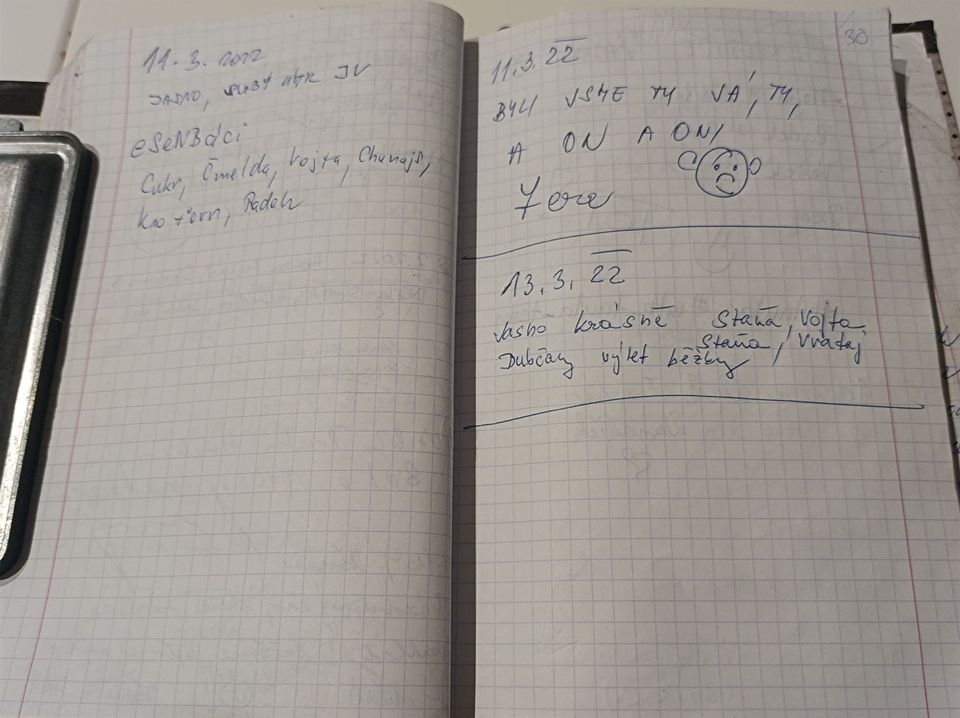 11. 3. 2022
JASNO, SLABÝ VÍTR JV
eSeNBáci
Cukr, Čmelda, Vojta,
Radek
30
11. 3. 22
BYLI JSME TU JÁ, TY,
A ON A ONI
13. 3. 22
Jasno krásně Staňa, Vojta
Dubčany výlet běžky Staňa, Vrátaj